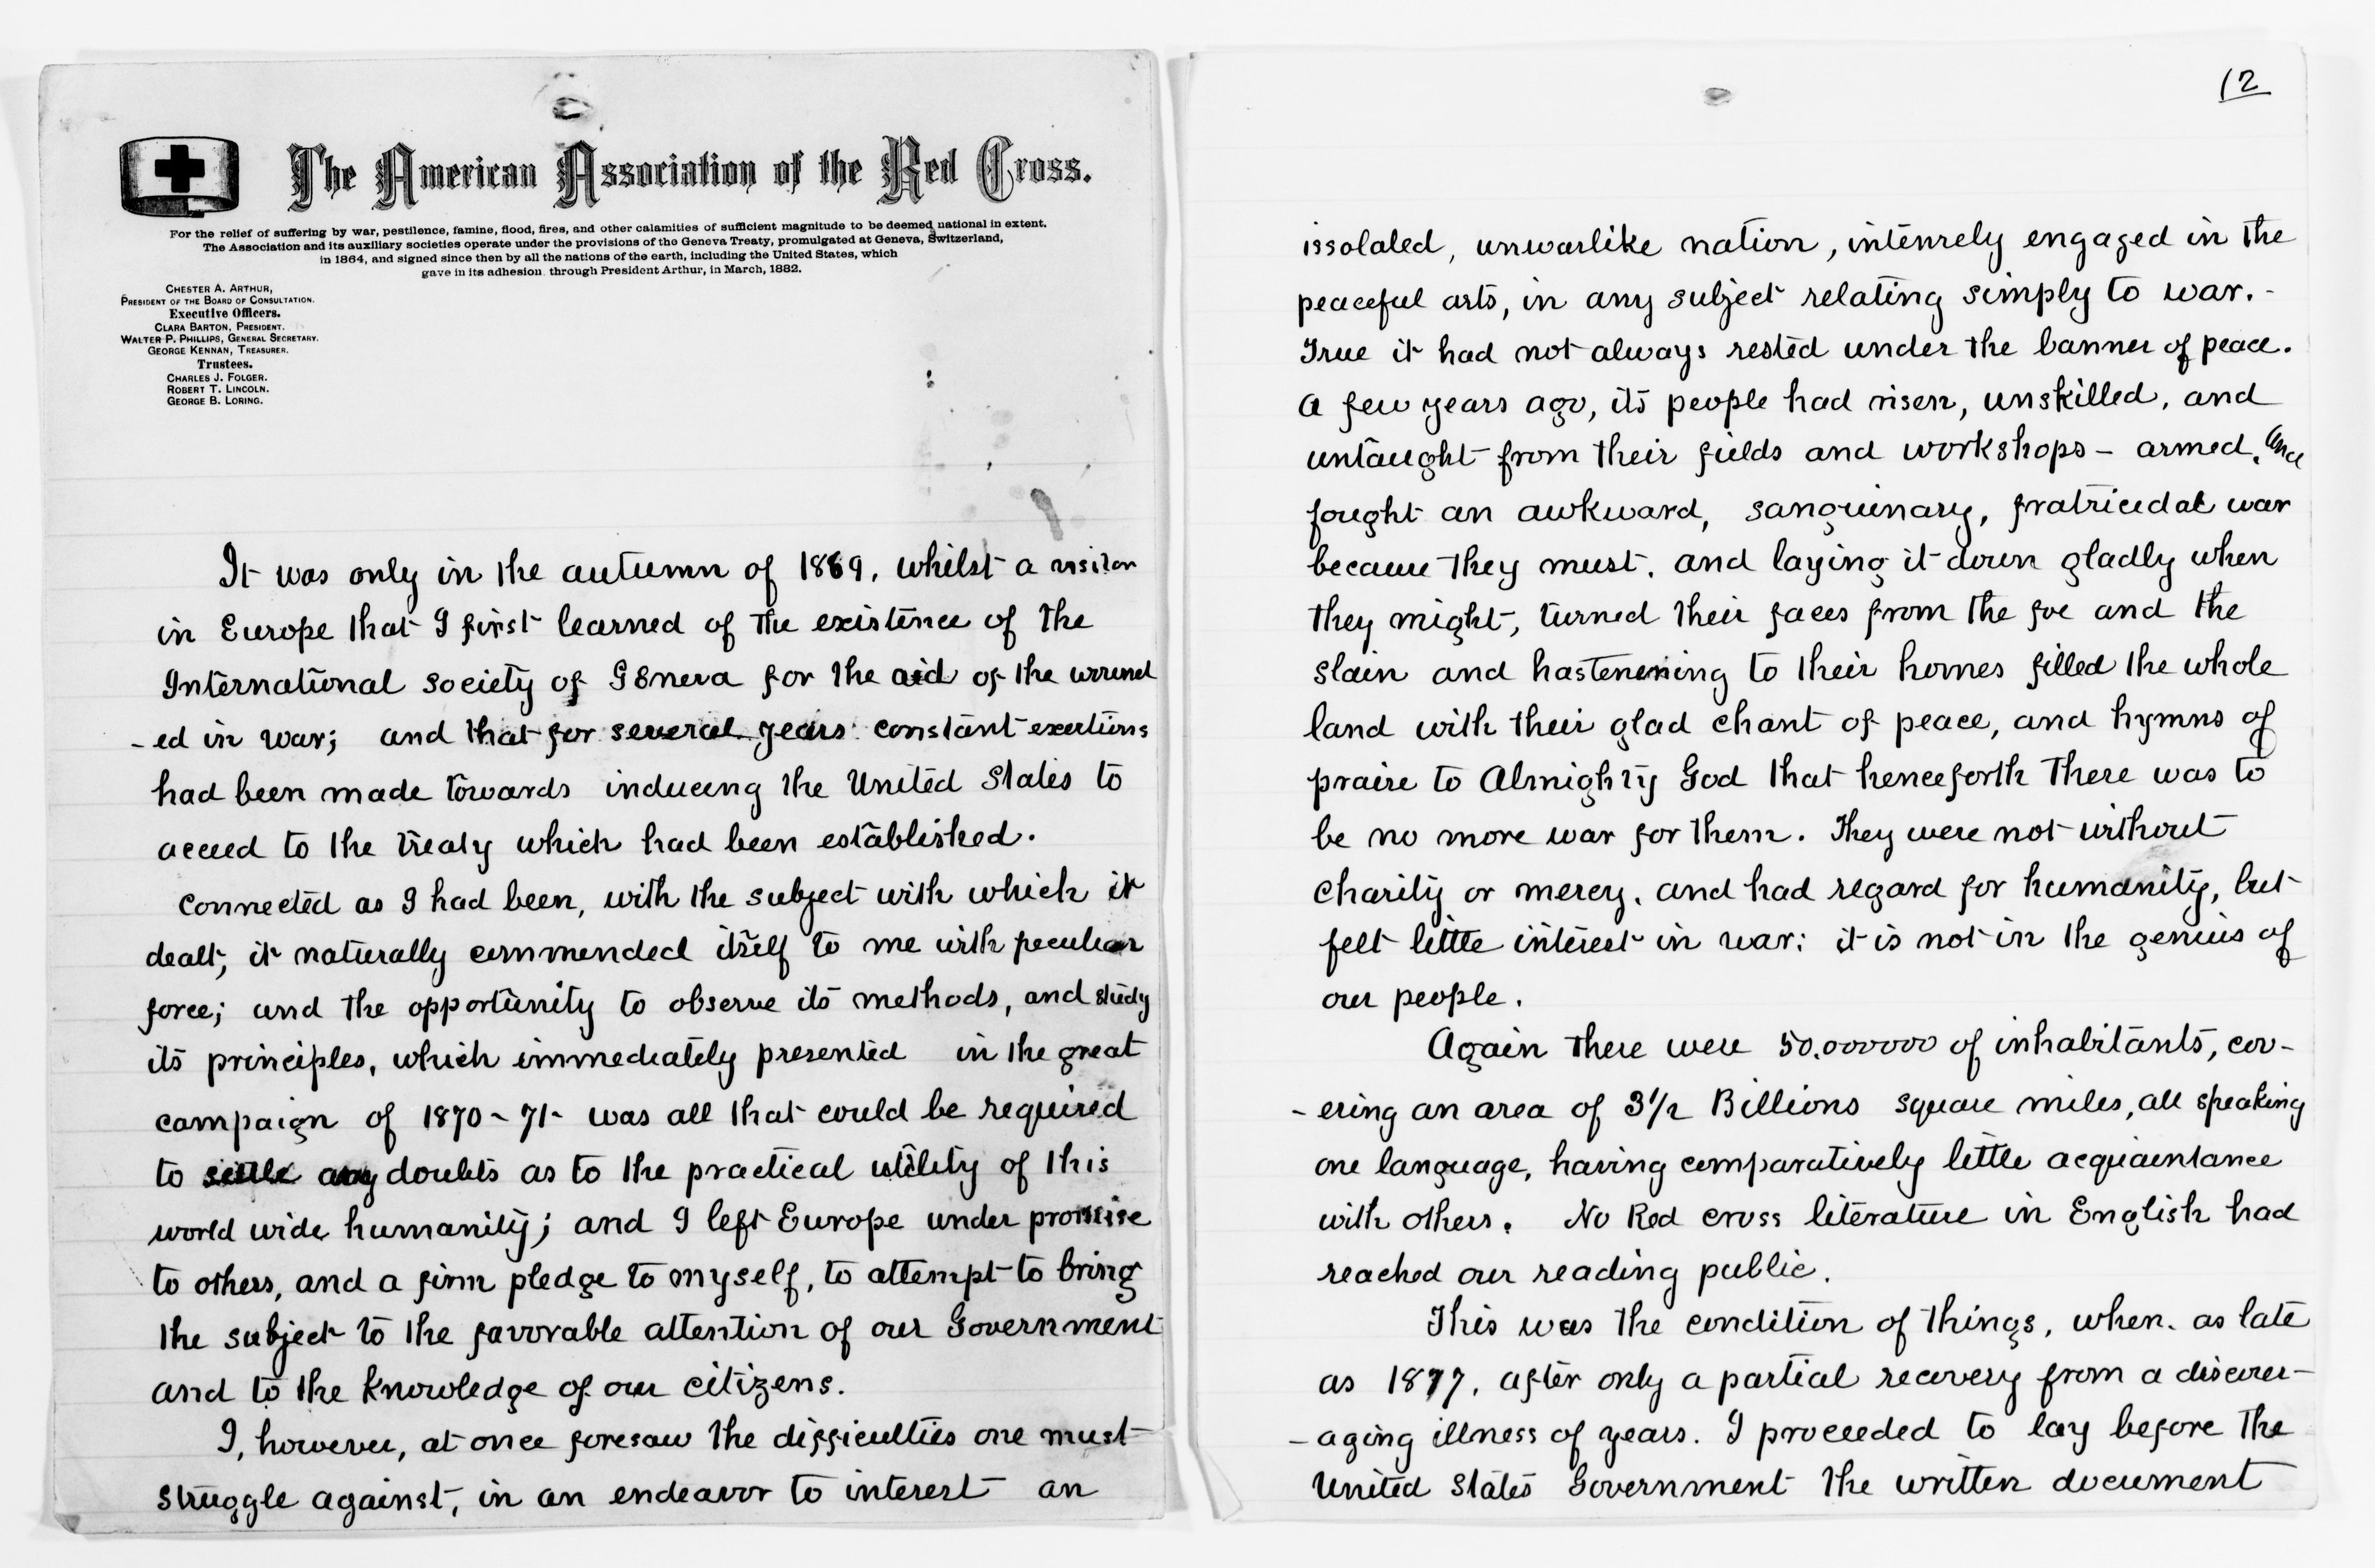 The American Association of the Red Cross.
For the relief of suffering by war, pestilence, famine, flood, fires, and other calamities of sufficient magnitude to be deemed national in extent.
The Association and its auxiliary societies operate under the provisions of the Geneva Treaty, promulgated at Geneva, Switzerland,
in 1864, and signed since then by all the nations of the earth, including the United States, which
gave in its adhesion through President Arthur, in March, 1882.
CHESTER A. ARTHUR,
PRESIDENT OF THE BOARD OF CONSULTATION.
Executive Officers.
CLARA BARTON, PRESIDENT.
WALTER P. PHILLIPS, GENERAL SECRETARY.
GEORGE KENNAN, TREASURER.
Trustees.
CHARLES J. FOLGER.
ROBERT T. LINCOLN.
GEORGE B. LORING.
It was only in the autumn of 1869, whilst a visitor
in Europe that I first learned of the existence of the
International society of Geneva for the aid of the wound
-ed in war; and that for several years constant exertions
had been made towards inducing the United States to
acceed to the treaty which had been established.
Connected as I had been, with the subject with which it
dealt, it naturally commended itself to me with peculiar
force; and the opportunity to observe its methods, and study
its principles, which immediately presented in the great
campaign of 1870-71- was all that could be required
to settle any doubts as to the practical utility of this
world wide humanity; and I left Europe under promise
to others, and a firm pledge to myself, to attempt to bring
the subject to the favorable attention of our Government
and to the knowledge of our citizens.
I, however, at once foresaw the difficulties one must
struggle against, in an endeavor to interest an
12
issolated, unwarlike nation, intensely engaged in the
peaceful arts, in any subject relating simply to war.-
True it had not always rested under the banner of peace.
A few years ago, its people had risen, unskilled, and
untaught from their fields and workshops - armed, and
fought an awkward, sanguinary, fratricedal war
because they must, and laying it down gladly when
they might, turned their faces from the foe and the
slain and hastenening to their homes filled the whole
land with their glad chant of peace, and hymns of
praise to Almighty God that henceforth there was to
be no more war for them. They were not without
charity or mercy, and had regard for humanity, but
felt little interest in war; it is not in the genius of
our people.
Again there were 50.000000 of inhabitants, cov-
-ering an area of 3 1/2 Billions square miles, all speaking
one language, having comparatively little acquaintance
with others. No Red cross literature in English had
reached our reading public.
This was the condition of things, when. as late
as 1877, after only a partial recovery from a discour-
-aging illness of years. I proceeded to lay before the
United States Government the written document